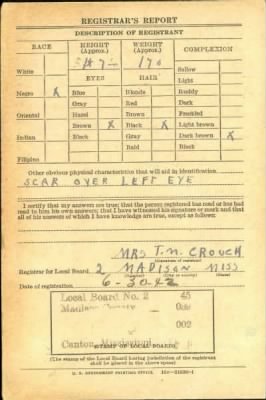 REGISTRAR'S REPORT
DESCRIPTION OF REGISTRANT
RACE HEIGHT (Approx.) WEIGHT (Approx.) COMPLEXION
White 170 Sallow
EYES HAIR Light
Negro X Blue Blonde Ruddy
Gray Red Dark
Oriental Hazel Brown Freckled
Brown X Black X Light brown
Indian Black Gray Dark brown X
Bald Black
Filipino
Other obvious physical characteristics that will aid in identification
SCAR OVER LEFT EYE
I certify that my answers are true; that the person registered has read or has had
read to him his own answers; that I have witnessed his signature or mark and that
all of his answers of which I have knowledge are true, except as follows:
MRS T. N. CROUCH
(Signature of registrar)
Registrar for Local Board 2 MADISON MISS
Date of registration 6-30-42
Local Board No. 2 45
Madison County
002
Canton, Mississippi
(STAMP OF LOCAL BOARD)
(The stamp of the Local Board having jurisdiction of the registrant
shall be placed in the above space.)
U. S. GOVERNMENT PRINTING OFFICE 16—21630-1